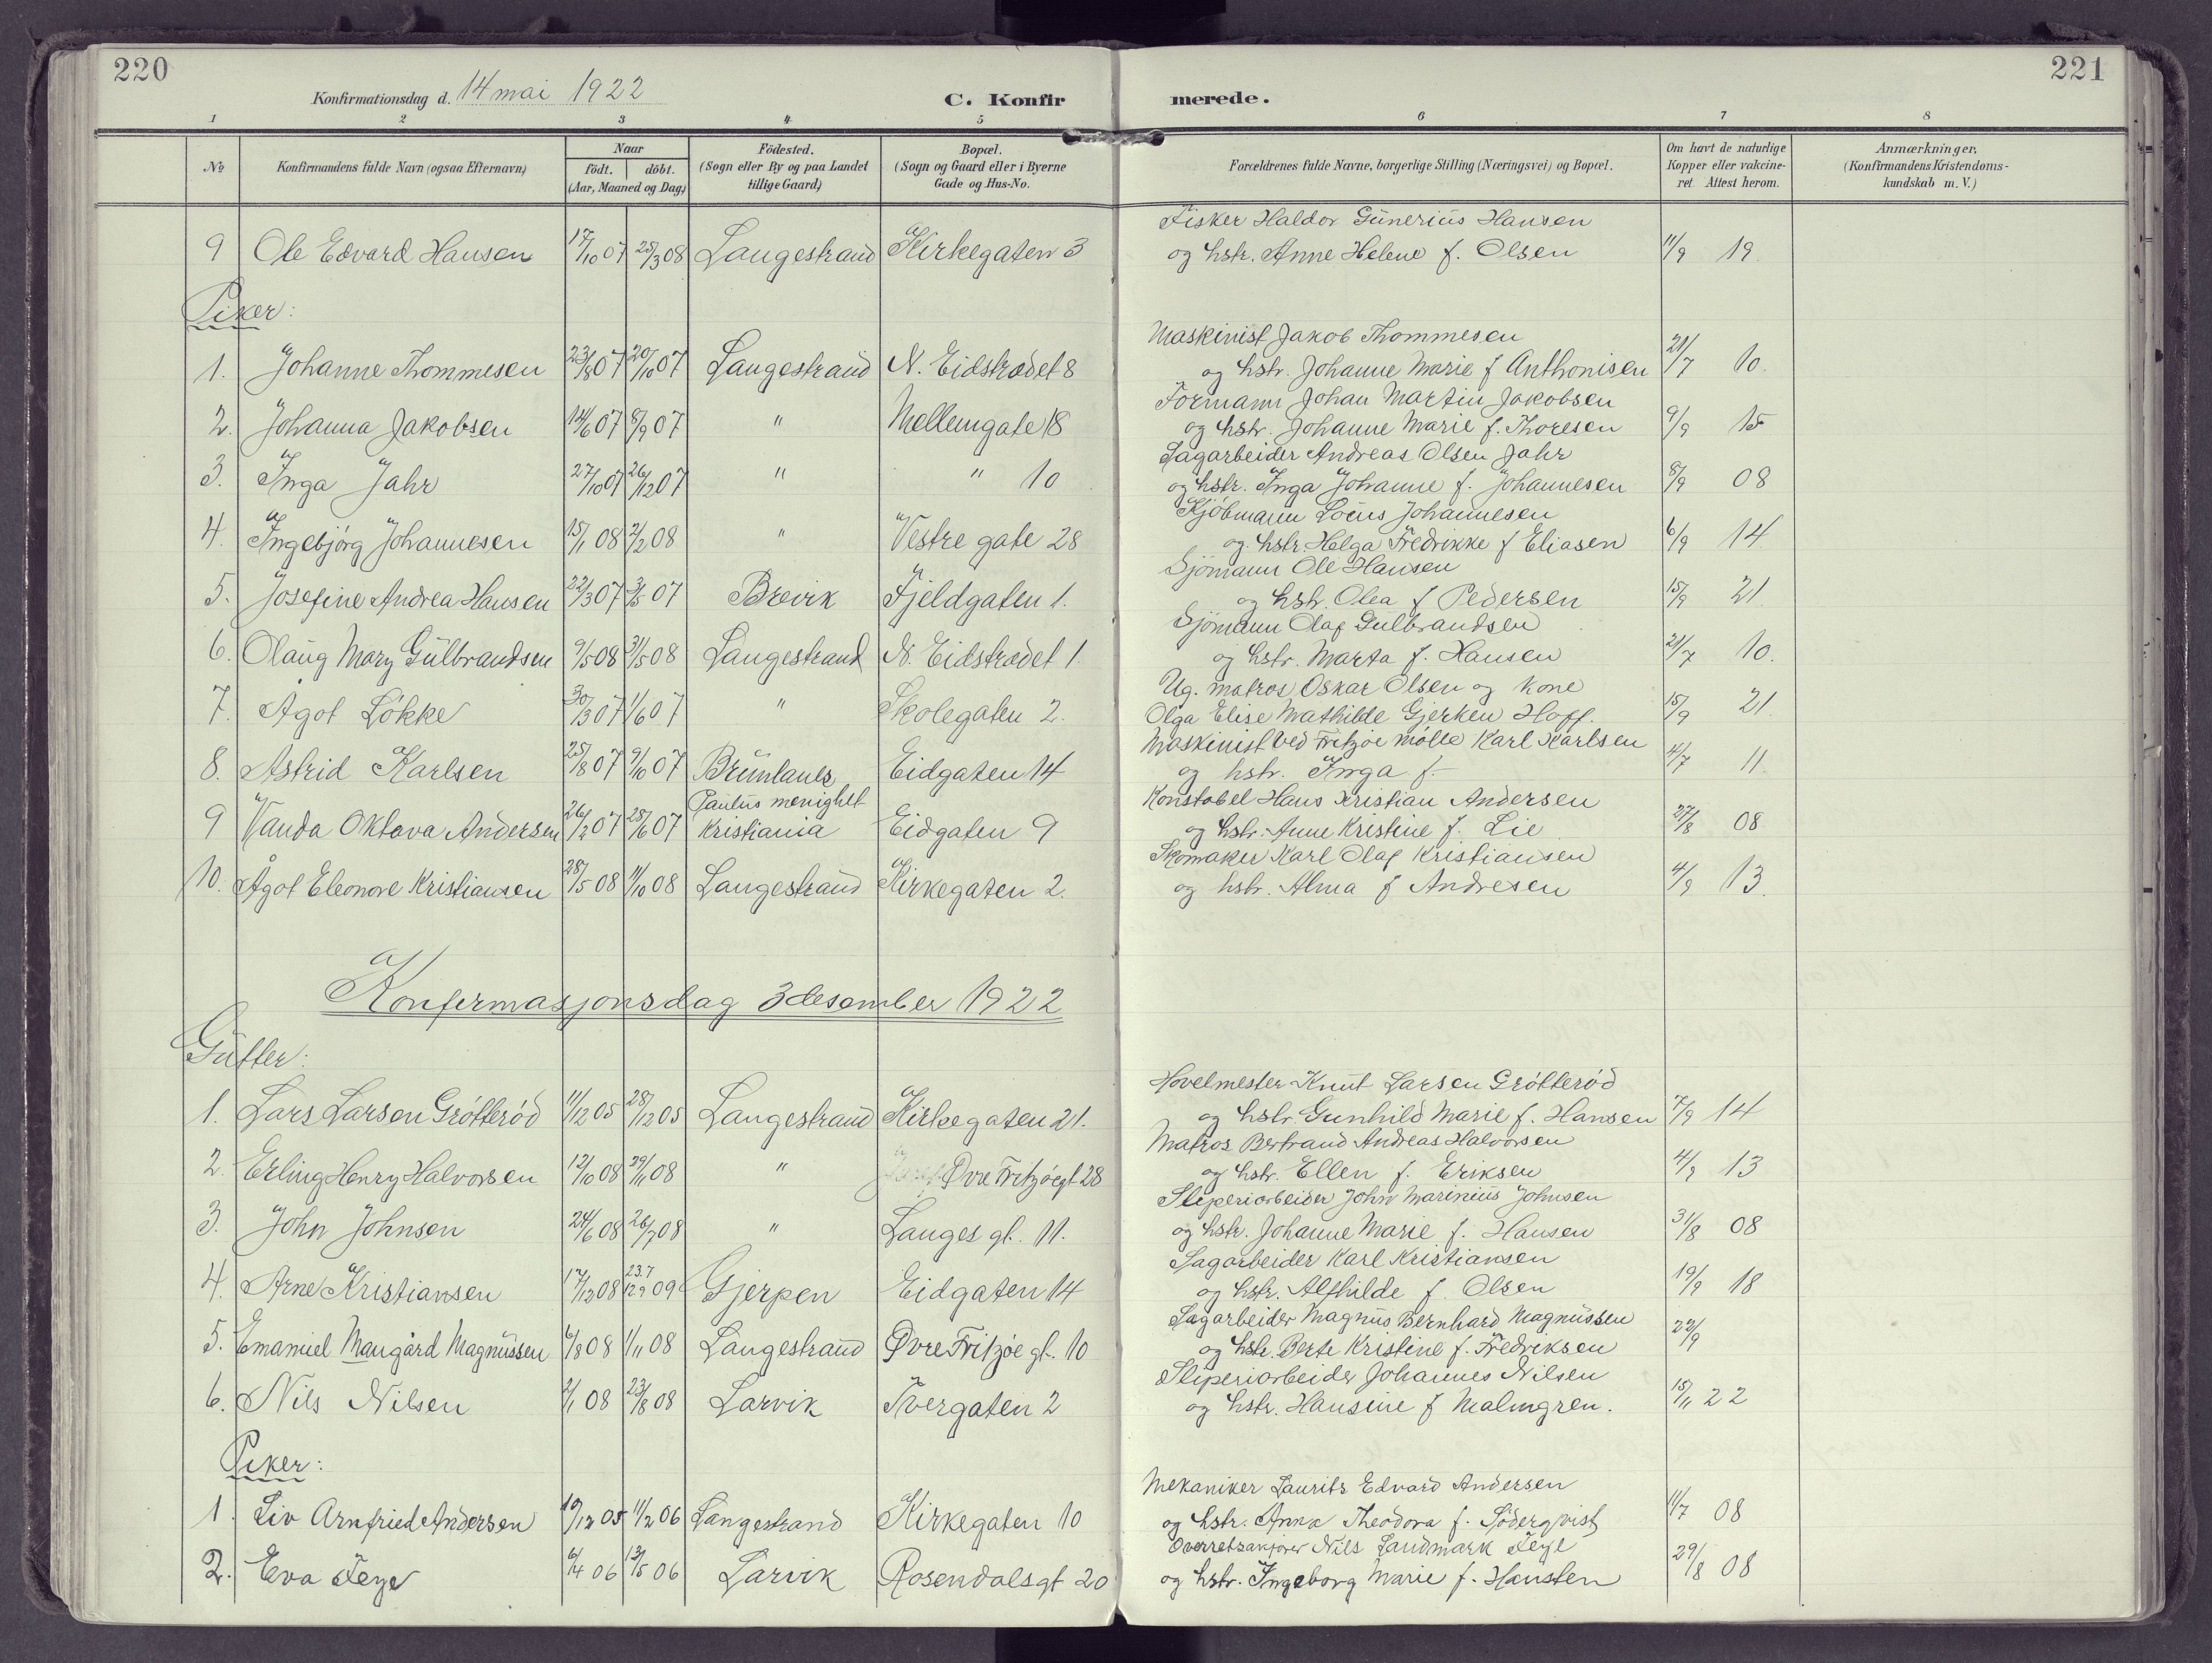 220
221
Konfirmationsdag d. 14 mai 1922
C. Konfir
merede.
1 2 3 4 5 6 7 8
No
Konfirmandens fulde Navn (ogsaa Efternavn)
Naar
födt. döbt.
(Aar, Maaned og Dag)
Födested.
(Sogn eller By og paa Landet
tillige Gaard)
Bopæl.
(Sogn og Gaard eller i Byerne
Gade og Hus-No.
Forældrenes fulde Navne, borgerlige Stilling (Næringsvei) og Bopæl.
Om havt de naturlige
Kopper eller vakcine-
ret. Attest herom.
Anmærkninger.
(Konfirmandens Kristendoms-
kundskab m. V.)
Fisker Haldor Gunerius Hansen
9 Ole Edvard Hansen 17/10 07 25/3 08 Langestrand Kirkegaten 3 og hstr. Anne Helene f. Olsen 11/9 19.
Piker:
Maskinist Jakob Thommesen
1. Johanne Thommesen 23/8 07 20/10 07 Langestrand N. Eidstrødet 8 og hstr. Johanne Marie f Anthonisen 21/7 10.
Formann Johan Martin Jakobsen
2. Johanna Jakobsen 14/6 07 8/9 07 " Mellemgate 18 og hstr. Johanne Marie f. Thoresen 9/9 15
Sagarbeider Andreas Olsen Jahr
3. Inga Jahr 27/10 07 26/12 07 " " 10 og hstr. Inga Johanne f. Johannesen 8/9 08
Kjöbmann Johannesen
4. Ingebjörg Johannesen 15/1 08 2/2 08 " Vestre gate 28 og hstr. Helga Fredrikke f Eliasen 6/9 14
Sjömann Ole Hansen
5. Josefine Andrea Hansen 22/3 07 3/5 07 Brevik Fjeldgaten 1. og hstr. Olea f Pedersen 15/9 21.
Sjömann Olaf Gulbrandsen
6. Olaug Mary Gulbrandsen 9/5 08 31/5 08 Langestrand N. Eidstrødet 1. og hstr. Marta f. Hansen 21/7 10.
Ug. matros Oskar Olsen og kone
7. Agot Lökke 30/3 07 1/6 07 " Skolegaten 2. Olga Elise Mathilde Gjerken Hoff. 15/9 21
Maskinist ved Fritzöe mölle Karl Karlsen
8. Astrid Karlsen 25/8 07 9/10 07 Brunlanes Eidgaten 14 og hstr. Inga f. 4/7 11.
Paulus menighet Konstabel Hans Kristian Andersen
9 Vanda Oktava Andersen 26/2 07 25/6 07 Kristiania Eidgaten 9 og hstr. Anne Kristine f. Lie 27/8 08
Skomaker Karl Olaf Kristiansen
10. Ågot Eleonore Kristiansen 28/5 08 11/10 08 Langestrand Kirkegaten 2. og hstr. Alma f Andresen 4/9 13.
Konfermasjonsdag 3 desember 1922
Gutter:
Hovelmester Knut Larsen Grötteröd
1. Lars Larsen Grötteröd 11/12 05 28/12 05 Langestrand Kirkegaten 21. og hstr. Gunhild Marie f. Hansen 7/9 14
Matros Bertrand Andreas Halvorsen
2. Erling Henry Halvorsen 12/10 08 29/11 08 " Øvre Fritzöegt 28 og hstr. Ellen f. Eriksen 4/9 13
Sliperiarbeider John Marinius Johnsen
3. John Johnsen 24/6 08 26/7 08 " Langes gt. 11. og hstr. Johanne Marie f. Hansen 31/8 08
Sagarbeider Karl Kristiansen
4. Arne Kristiansen 17/12 08 23.7 12.9 09 Gjerpen Eidgaten 14 og hstr. Alfhilde f. Olsen 19/9 18
Sagarbeider Magnus Bernhard Magnussen
5. Emanuel Maugård Magnussen 6/8 08 1/11 08 Langestrand Øvre Fritzöe gt. 10 og hstr. Berte Kristine f. Fredriksen 22/9
Sliperiarbeider Johannes Nilsen
6. Nils Nilsen 2/1 08 23/8 08 Larvik Tvergaten 2 og hstr. Hansine f Malmgren. 15/11 22
Piker:
Mekaniker Laurits Edvard Andersen
1. Liv Arnfried Andersen 10/12 05 11/2 06 Langestrand Kirkegaten 10 og hstr. Anna Theodora f. Söderqvist 11/7 08
Overretssakförer Nils Landmark Feye
2. Eva Feye 6/4 06 13/5 06 Larvik Rosendalsgt 20 og hstr. Ingeborg Marie f. Hansten 29/8 08